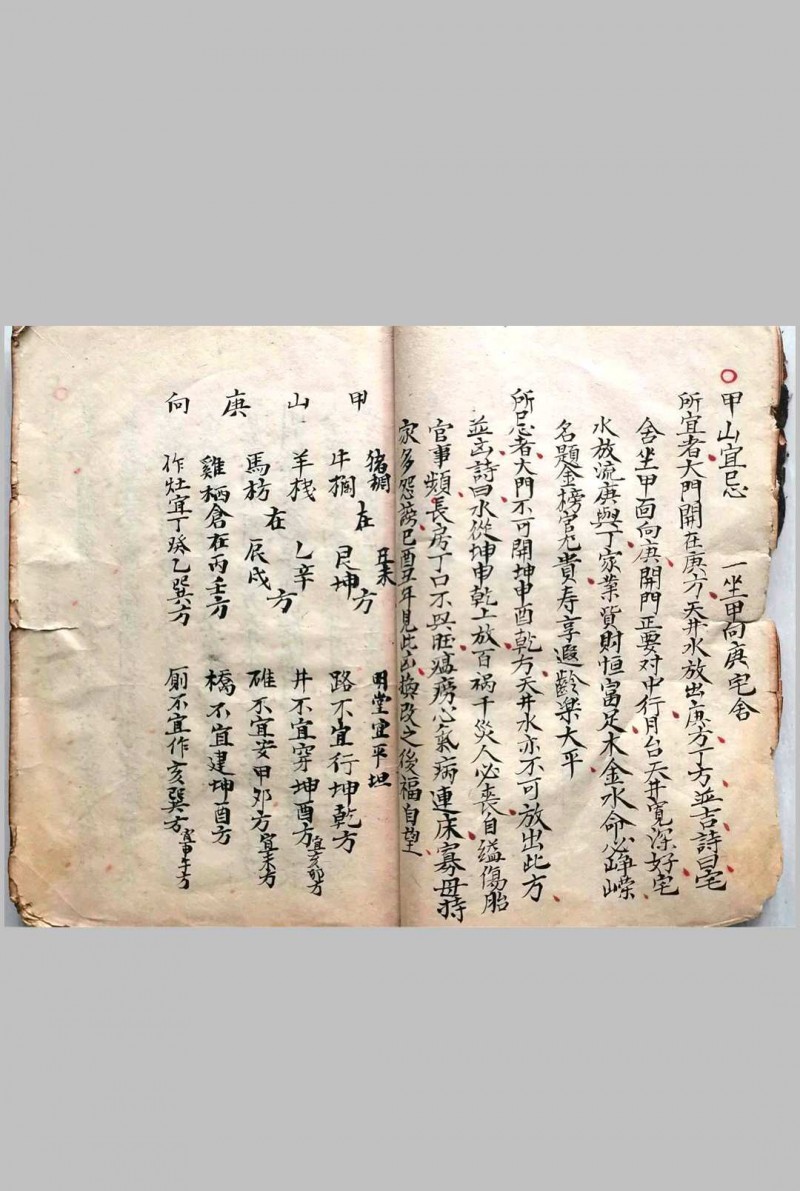 甲山宜忌　一坐甲向庚宅舍
所宜者大門開在庚方天井水放出庚方丁方並吉詩曰宅
舍坐甲面向庚開門正要对中行月台天井寬深好宅
水放流庚與丁家業貨財恒富足木金水命必崢嶸
名題金榜官尤貴寿享遐齡樂大平
所忌者大門不可開坤申酉乾方天井水亦不可放出此方
並凶詩曰水從坤申乾上放百祸千災人必丧自縊傷胎
官事頻長房丁口不興旺瘟痨心氣病連床寡母持
家多怨謗巳酉丑年見此凶換改之後福自望
甲山庚向
猪椆　在丑未方　明堂宜平坦
牛欄　艮坤　路不宜行坤乾方
羊栈　在乙辛方　井不宜穿坤酉方宜亥卯方
馬枋　辰戌　碓不宜安甲卯方宜未方
雞栖倉在丙壬方　橋不宜建坤酉方
作灶宜丁癸乙巽方　厠不宜作亥巽方宜申午方